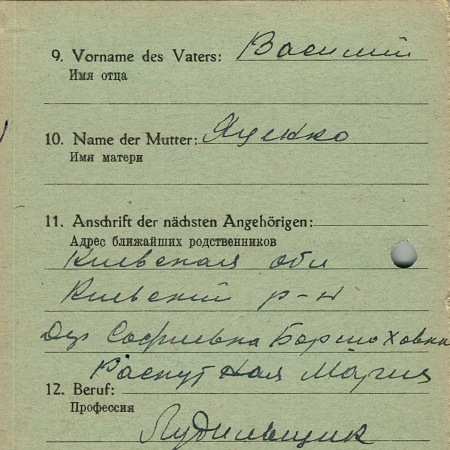 9. Vorname des Vaters: Василий
Имя отца
10. Name der Mutter: Яценко
Имя матери
11. Anschrift der nächsten Angehörigen:
Адрес ближайших родственников
Киевская обл
Киевский р-н
Дер Софиевка Борщаховка
Распутная Мария
12. Beruf:
Профессия
Лудильщик